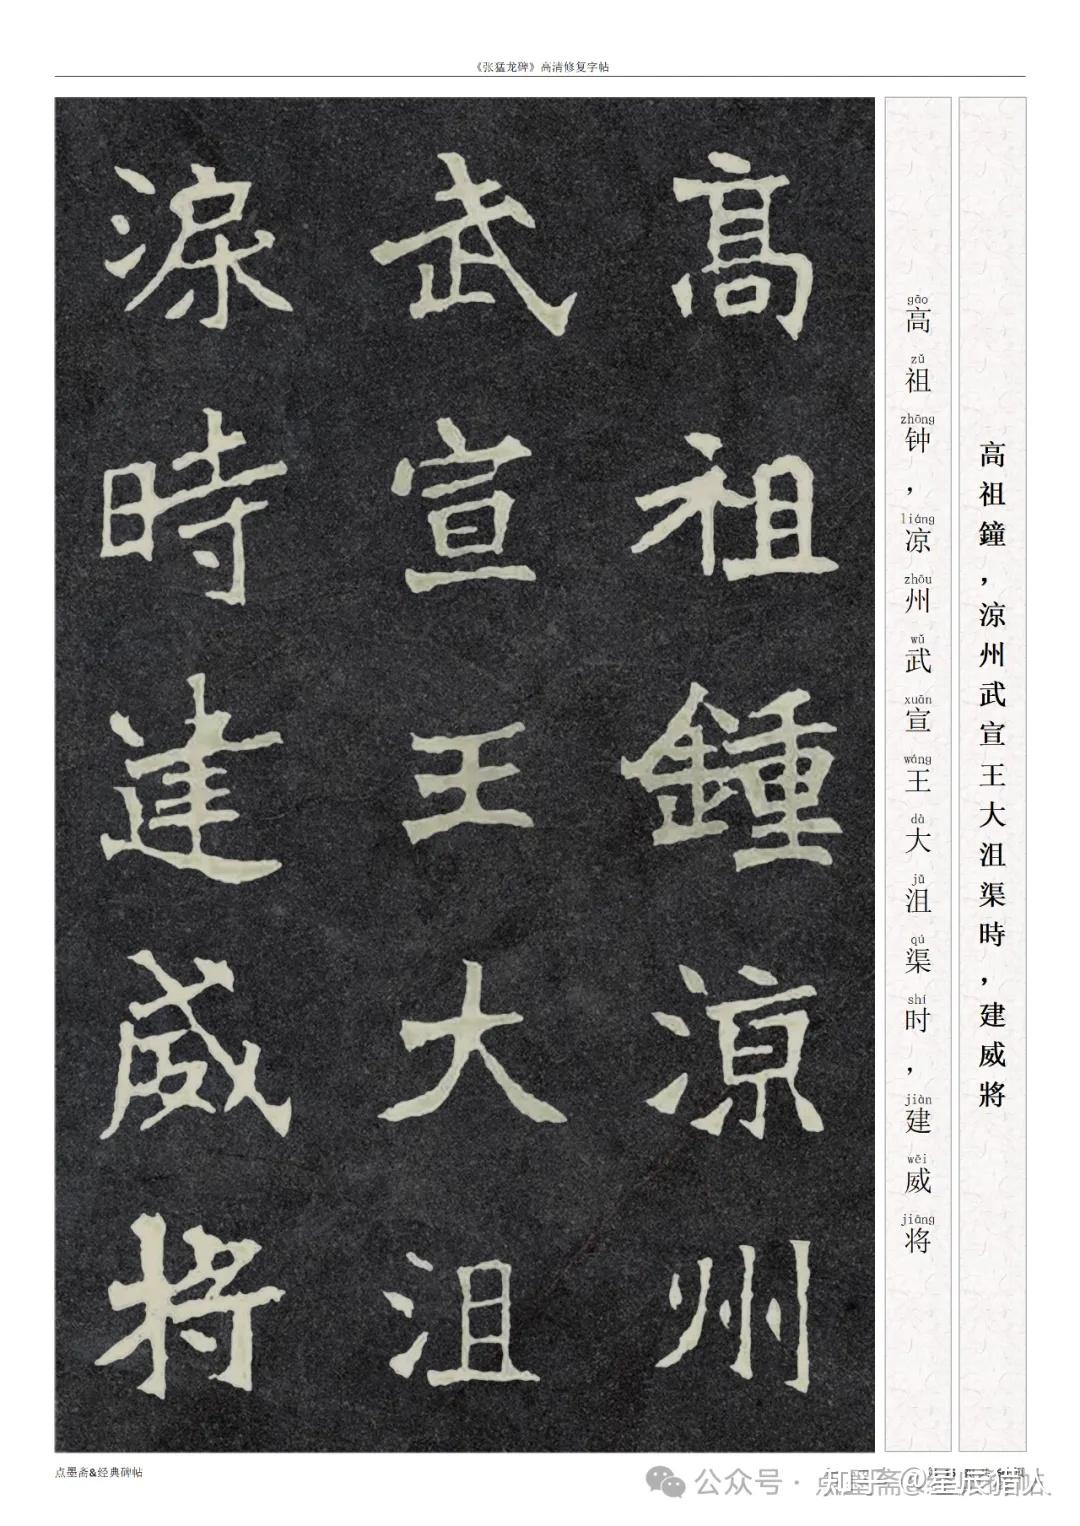 《张猛龙碑》高清修复字帖
高祖鐘，涼州武宣王大沮渠時，建威將
gāo zǔ zhōng liáng zhōu wǔ xuān wáng dà jǔ qú shí jiàn wēi jiāng
高祖钟，凉州武宣王大沮渠时，建威将
高祖鍾涼州
武宣王大沮
渠時建威将
点墨斋&经典碑帖
公众号·点墨斋
知乎 @星辰猎人